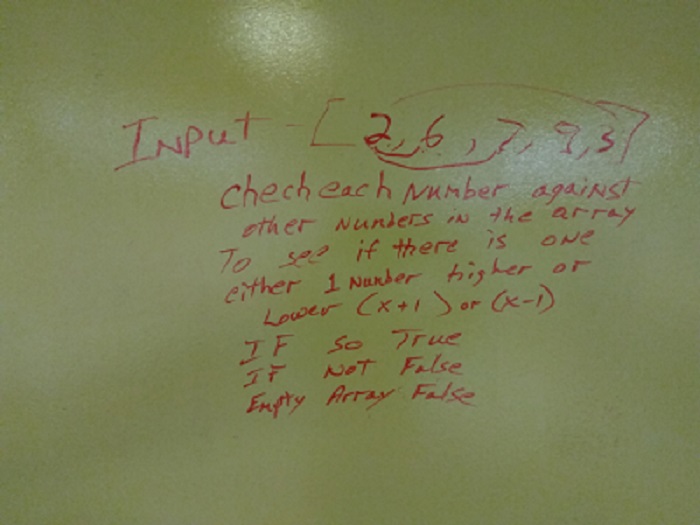 Input - [2, 6, 7, 9, 3]
Chech each Number against
other Numbers in the array
To see if there is one
either 1 Number higher or
Lower (x+1) or (x-1)
IF so True
IF Not False
Empty Array False